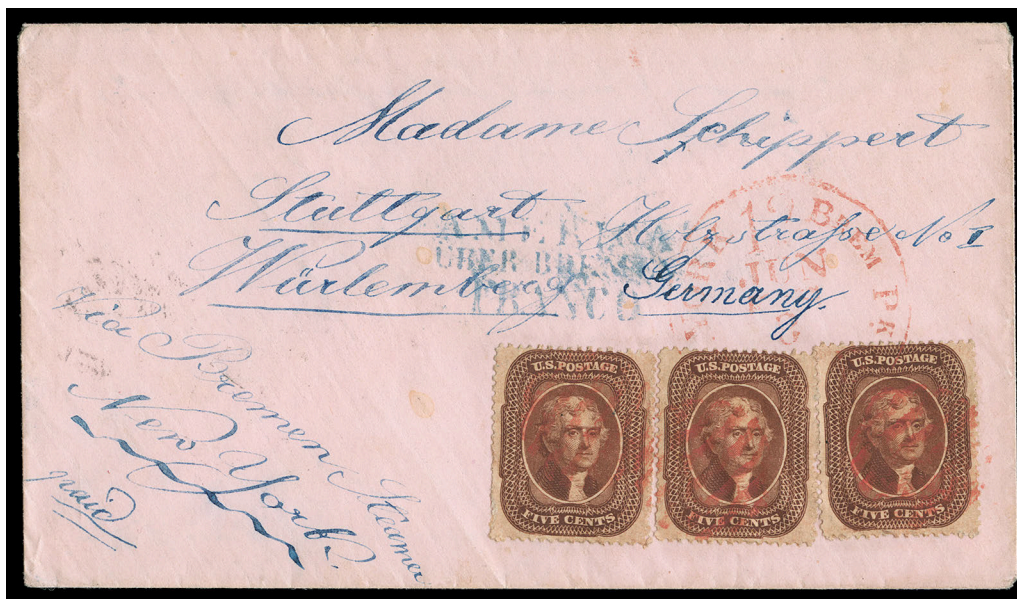 Madame Schippert
Stuttgart Holzstraße No I
Würtemberg Germany.
AMERICA
ÜBER BREMEN
FRANCO
BREM PK
12
JUN
Via Bremen Steamer
New York.
paid
U.S. POSTAGE
FIVE CENTS
U.S. POSTAGE
FIVE CENTS
U.S. POSTAGE
FIVE CENTS